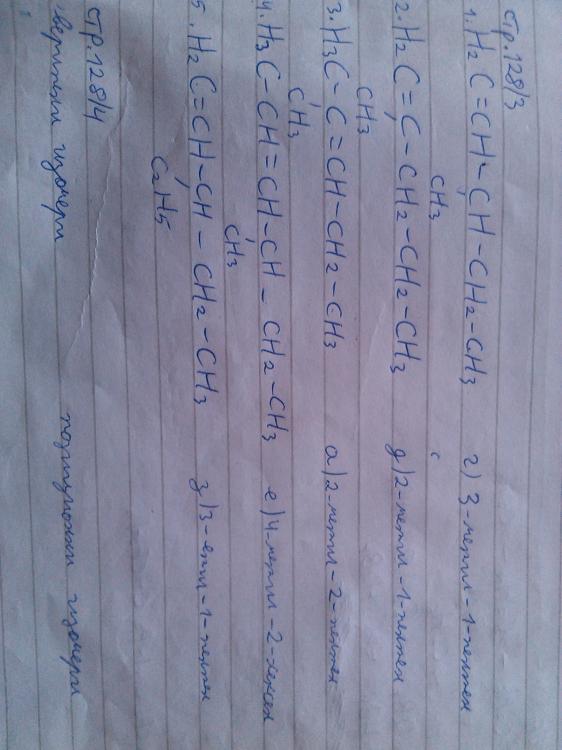 стр. 128/3
1. H2C=CH-CH-CH2-CH3 г) 3-метил-1-пентен
CH3
2. H2C=C-CH2-CH2-CH3 д) 2-метил-1-пентен
CH3
3. H3C-C=CH-CH2-CH3 а) 2-метил-2-пентен
CH3
4. H3C-CH=CH-CH-CH2-CH3 е) 4-метил-2-хексен
CH3
5. H2C=CH-CH-CH2-CH3 з) 3-етил-1-пентен
C2H5
стр. 128/4
верижни изомери позиционни изомери